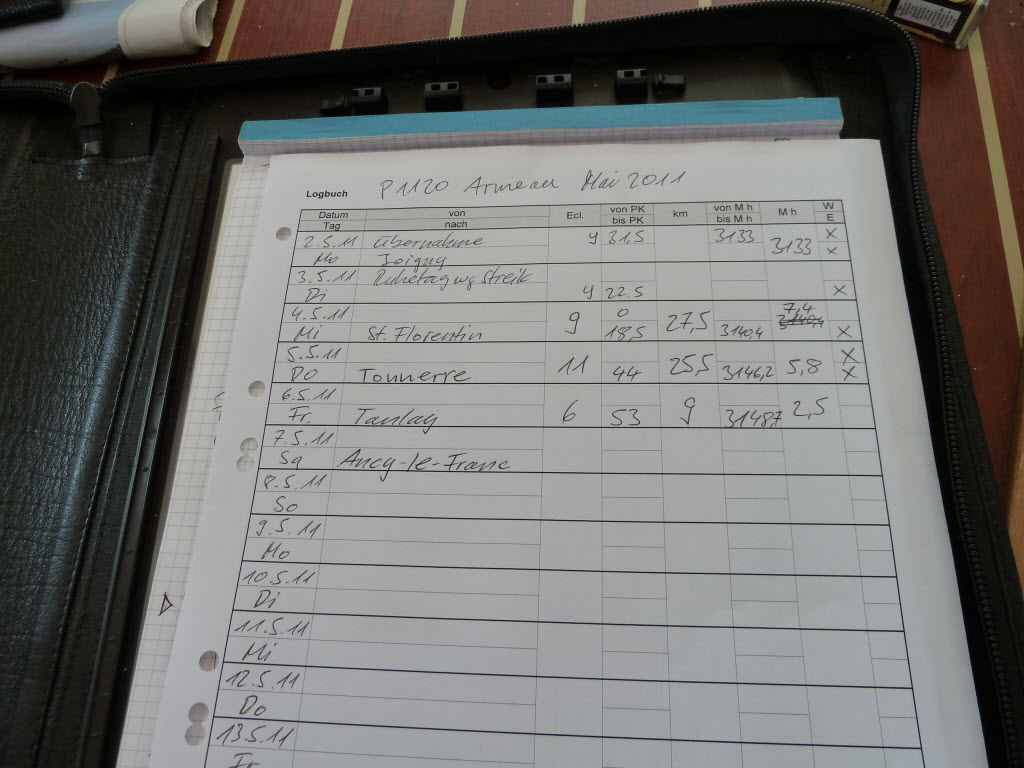 Logbuch P1120 Armeau Mai 2011
Datum von Ecl. von PK km von M h M h W
Tag nach bis PK bis M h E
2.5.11 Übernahme y 31,5 3133 x
Mo Joigny 3133 x
3.5.11 Ruhetag wg Streik
Di y 22.5 x
4.5.11 9 0 27,5 7,4
Mi St. Florentin 18,5 3140,4 x
5.5.11 11 25,5 5,8 x
Do Tonnerre 44 3146,2 x
6.5.11 6 9 2,5
Fr. Tanlay 53 3148,7
7.5.11
Sa Ancy-le-Franc
8.5.11
So
9.5.11
Mo
10.5.11
Di
11.5.11
Mi
12.5.11
Do
13.5.11
Fr